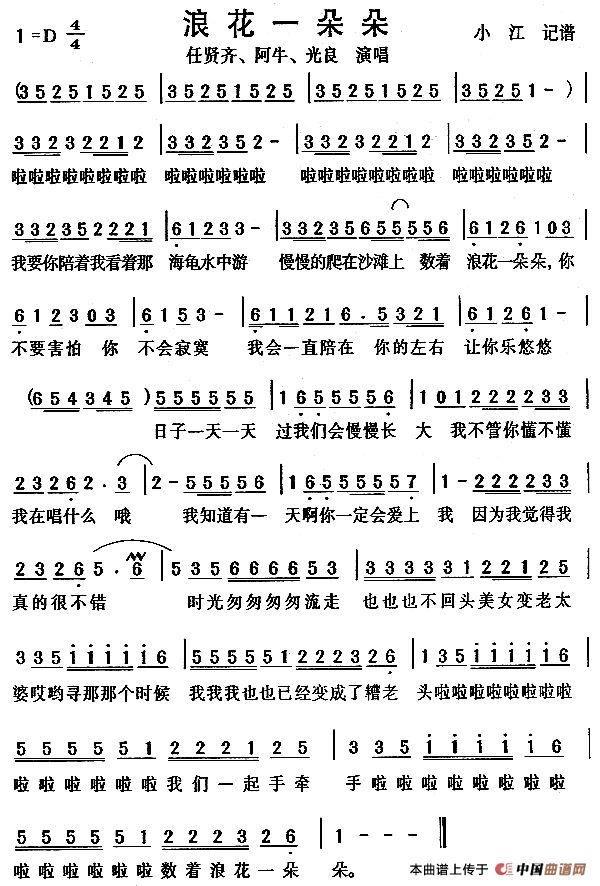 浪花一朵朵
1=D 4/4
任贤齐、阿牛、光良 演唱
小江 记谱
(3525 1525 | 3525 1525 | 3525 1525 | 3525 1 - )
33232 2212 | 332352 - | 33232 2212 | 332352 - |
啦啦啦啦啦啦啦啦 啦啦啦啦啦啦 啦啦啦啦啦啦啦啦 啦啦啦啦啦啦
3323522221 | 61233 - | 33235655555 | 6126103 |
我要你陪着我看着那 海龟水中游 慢慢的爬在沙滩上 数着 浪花一朵朵,你
612303 | 6153 - | 611216.5321 | 61261 - |
不要害怕 你 不会寂寞 我会一直陪在 你的左右 让你乐悠悠
(654345)555555 | 165555556 | 1012222233 |
日子一天一天 过我们会慢慢长 大 我不管你懂不懂
23262.3 | 2 - 55555 | 1655555557 | 1 - 222233 |
我在唱什么 哦 我知道有一 天啊你一定会爱上 我 因为我觉得我
23265.6 | 5356666653 | 33333322125 |
真的很不错 时光匆匆匆匆流走 也也也不回头美女变老太
3351111116 | 55555512223226 | 1351111116 |
婆哎哟寻那那个时候 我我我也也已经变成了糟老 头啦啦啦啦啦啦啦
555551222125 | 3351111116 |
啦啦啦啦啦啦我们一起手牵 手啦啦啦啦啦啦啦啦
5555551222326 | 1 - - - ‖
啦啦啦啦啦啦数着浪花一朵 朵。
本曲谱上传于 中国曲谱网